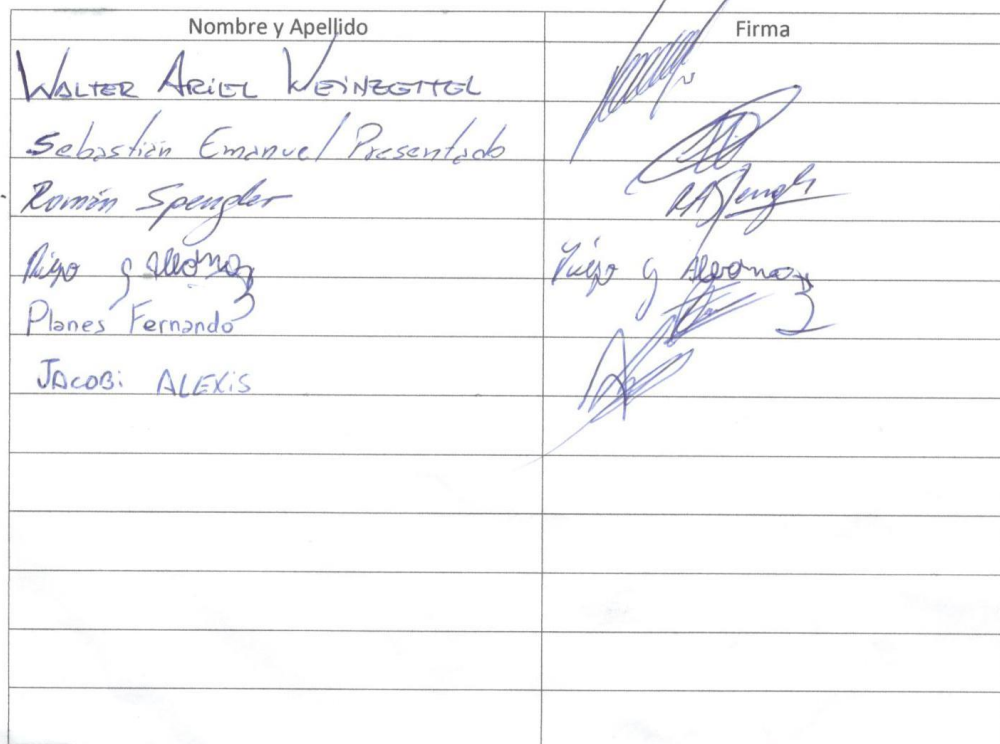 Nombre y Apellido Firma
WALTER ARIEL WEINZETTEL
Sebastián Emanuel Presentado
Román Spengler RASpengler
Diego G Albornoz Diego G Albornoz
Planes Fernando
JACOBi ALEXiS